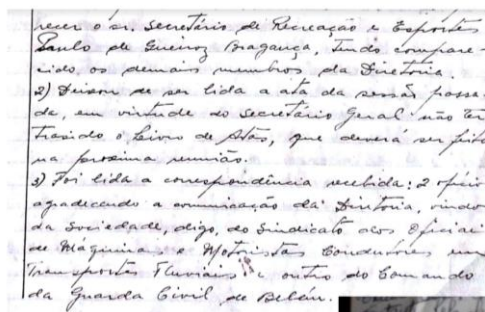 recer o sr. Secretário de Recreação e Esportes
Paulo de Queiroz Bragança, tendo compare-
cido os demais membros da Diretoria.
2) Deixou de ser lida a ata da sessão passa-
da, em virtude do Secretário Geral não ter
trasido o Livro de Atas, que deverá ser feito
na proxima reunião.
3) Foi lida a correspondência recebida: 2 ofícios
agradecendo a comunicação da Diretoria, vindos
da Sociedade, digo, do Sindicato dos Oficiais
de Máquinas e Motoristas Condutores em
Transportes Fluviais e outro do Comando
da Guarda Civil de Belém.